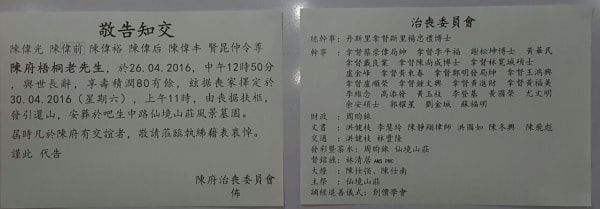 敬告知交
陳偉光 陳偉前 陳偉裕 陳偉后 陳偉丰 賢昆仲令尊
陳府梧桐老先生，於26.04.2016，中午12時50分
，與世長辭，享壽積潤80有餘，兹據喪家擇定於
30.04.2016（星期六），上午11時，由喪居扶柩，
發引還山，安葬於吧生中路仙境山莊風景墓園。
屆時凡於陳府有交誼者，敬請蒞臨執紼藉表哀悼。
謹此 代告
陳府治喪委員會
佈
治喪委員會
總幹事：丹斯里拿督斯里楊忠禮博士
幹事：拿督蔡崇偉局紳 拿督李平福 謝松坤博士 黃華民
拿督戴良業 拿督陳尚成博士 拿督林寬城碩士
盧金峰 拿督黃東春 拿督鄭明發局紳 拿督王鴻興
拿督盧順榮 拿督鍾文興 拿督黃進財 拿督黃福美
李維念 高添發 黃玉枝 李登基 黃國榮 尤文明
余安碩士 郭耀星 劉金城 蘇福明
財政：周昀錸
文書：洪健枝 李慧玲 陳靜翔律師 洪國如 陳冬興 陳飛彪
交通：洪健枝 林豐隆
發彩暨茶水：周昀錸 仙境山莊
督銘旌：林清居 AMS PMC
大燈：陳仕強、陳仕南
主祭：仙境山莊
誦經追善儀式：創價學會